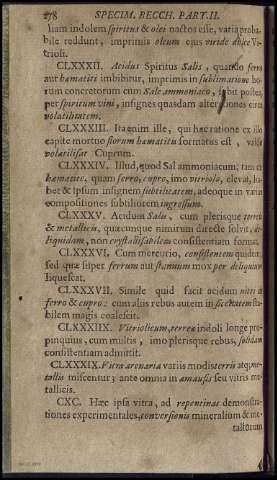 278 SPECIM. BECCH. PART. II.
liam indolem spiritus & olei nactos esse, varia proba-
bile reddunt, imprimis oleum ejus viride dulce Vi-
trioli.
CLXXXII. Acidus Spiritus Salis, quando ferro
aut hæmatite imbibitur, imprimis in sublimatione ho-
rum concretorum cum Sale ammoniaco, exhibet postea,
per spiritum vini, insignes quasdam alterationes circa
volatilitatem.
CLXXXIII. Itaenim ille, qui hac ratione ex illo
capite mortuo florum hæmatitis formatus est, valde
volatilisat Cuprum.
CLXXXIV. Illud, quod Sal ammoniacum, tam ex
hæmatite, quam ferro, cupro, imo vitriolo, elevat, ha-
bet & ipsum insignem subtilitatem, adeoque in varia
compositiones subtiliorem ingressum.
CLXXXV. Acidum Salis, cum plerisque terreis
& metallicis, quæcunque nimirum directe solvit, de-
liquidam, non crystallisabilem consistentiam format.
CLXXXVI. Cum mercurio, consistentem quidem
sed quæ super ferrum aut stannum mox per deliquium
liquescat.
CLXXXVII. Simile quid facit acidum nitri
ferro & cupro: cum aliis rebus autem in siccitatem sta-
bilem magis coalescit.
CLXXXIIX. Vitriolicum, terreæ indoli longe pro-
pinquius, cum multis, imo plerisque rebus, solidam
consistentiam admittit.
CLXXXIX. Vitra arenaria variis modis terris atq; me-
tallis miscentur; ante omnia in amausis seu vitris me-
tallicis.
CXC. Hæc ipsa vitra, ad repentinas demonstra-
tiones experimentales, conversionis mineralium & me-
tallorum